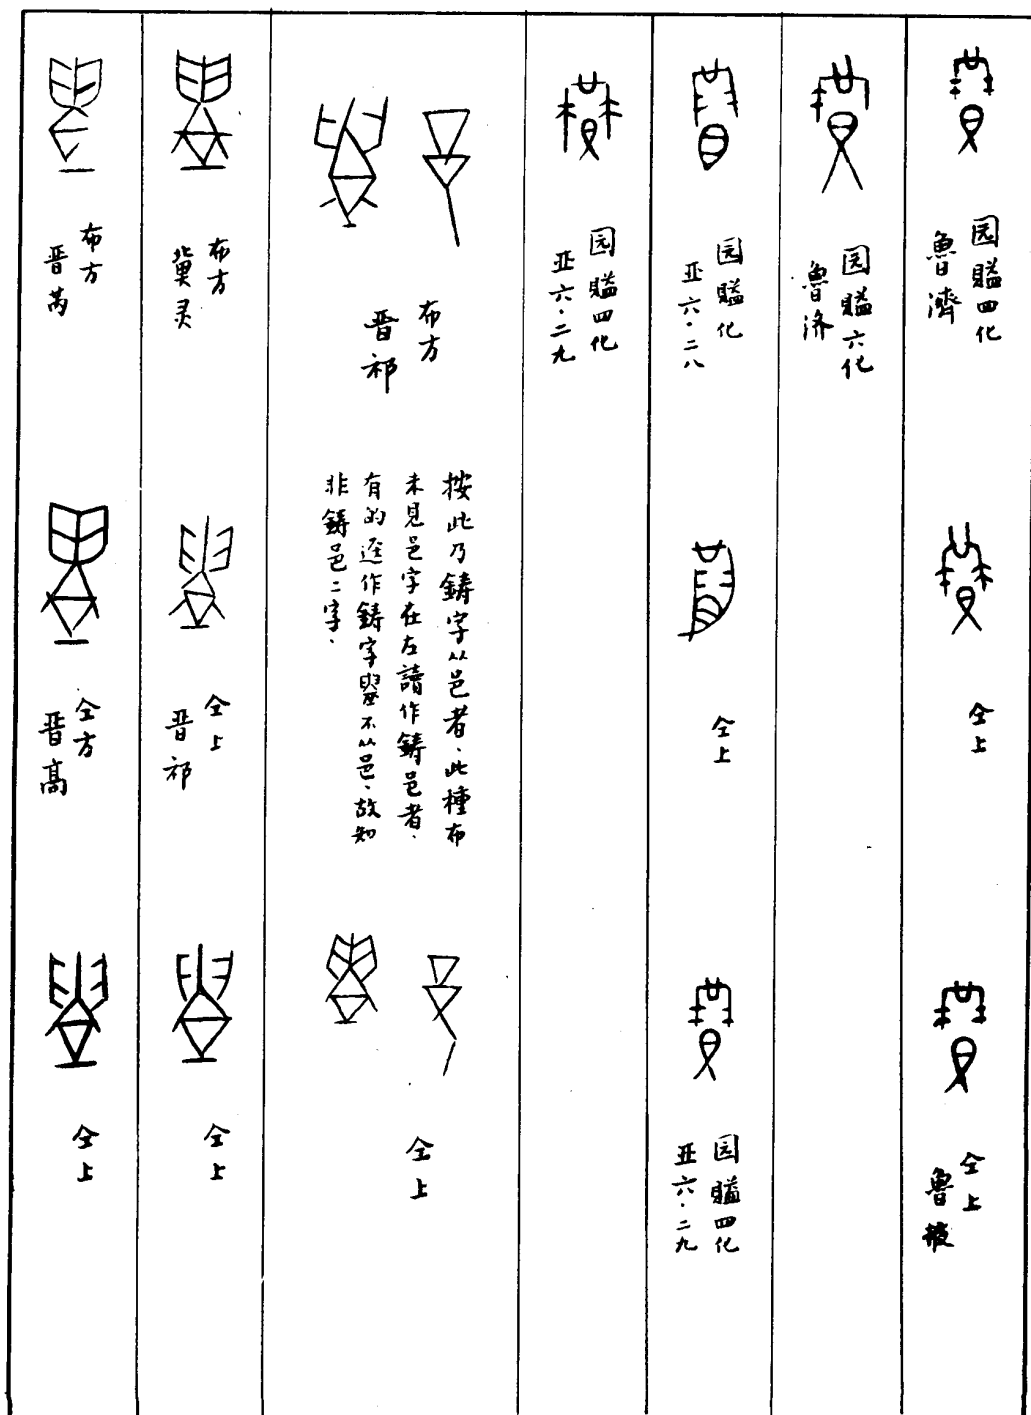 园賹四化
魯濟
仝上
仝上
魯
园賹六化
魯济
园賹化
亚六·二八
仝上
园賹四化
亚六·二九
园賹四化
亚六·二九
布方
晋祁
按此乃鑄字从邑者、此種布
未見邑字在左讀作鑄邑者、
有的逕作鑄字不从邑、故知
非鑄邑二字、
仝上
布方
冀灵
仝上
晋祁
仝上
布方
晋芮
仝方
晋高
仝上